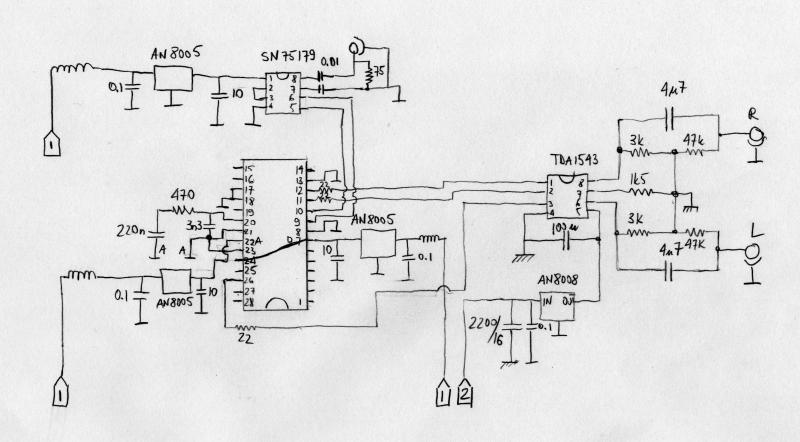 AN8005
SN75179
0.01
75
0.1
10
1 8
2 7
3 6
4 5
1
4µ7
R
3k
47k
TDA1543
1 8
2 7
3 6
4 5
1k5
3k
47K
4µ7
L
100µ
AN8008
IN OU
2200/
16
0.1
2
1
15 14
16 13
17 12
18 11
19 10
20 9
21 8
22A
23
24
25
26
27
28 1
22
470
220n
3n3
A
A
AN8005
10
0.1
AN8005
0.1
10
22
1